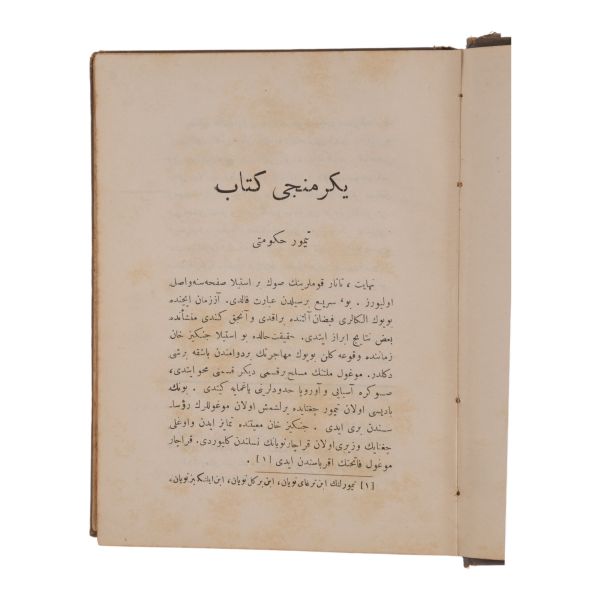 یكرمنجی كتاب
تیمور حكومتی
نهایت، تاتار قوملرینك صوك بر استیلا صفحه‌سنه واصل
اولیورز . بو، سریع برسیلدن عبارت قالدی. آززمان ایچنده
بویوك الكالری فیضان آلتنده براقدی و آنجق كندی منشأنده
بعض نتایج ابراز ایتدی. حقیقت حالده بو استیلا جنكیز خان
زماننده وقوعه كلن بویوك مهاجرتك بردوامندن باشقه برشی
دكلدر. موغول ملتنك مسلح برقسمی دیكر قسمنی محو ایتدی،
صوكره آسیایی و آوروپا حدودلرینی یاغمایه كیتدی . بونك
بادیسی اولان تیمور چغتایده یرلشمش اولان موغوللرك رؤسا-
سندن بری ایدی . جنكیز خان معیتنده تمایز ایدن و اوغلی
چغتایك وزیری اولان قراچار نویانك نسلندن كلیوردی. قراچار
موغول فاتحنك اقرباسندن ایدی [۱] .
[۱] تیمورلنك ابن ترغای نویان، ابن بركل نویان، ابن ایلنكیز نویان،